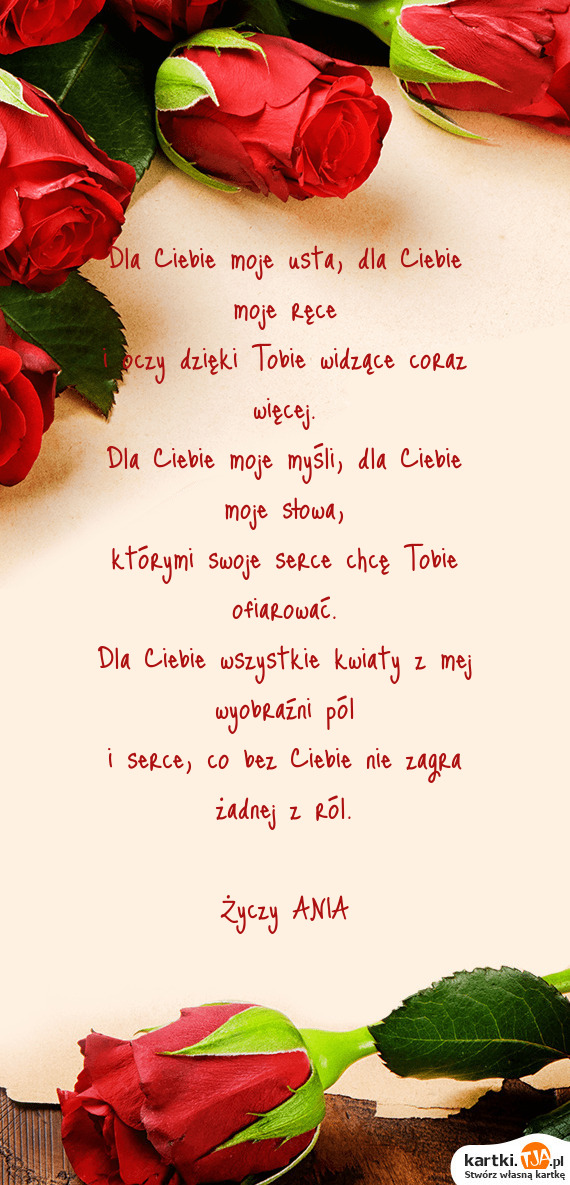 Dla Ciebie moje usta, dla Ciebie
moje ręce
i oczy dzięki Tobie widzące coraz
więcej.
Dla Ciebie moje myśli, dla Ciebie
moje słowa,
którymi swoje serce chcę Tobie
ofiarować.
Dla Ciebie wszystkie kwiaty z mej
wyobraźni pól
i serce, co bez Ciebie nie zagra
żadnej z ról.
Życzy ANIA
kartki.TJA.pl
Stwórz własną kartkę